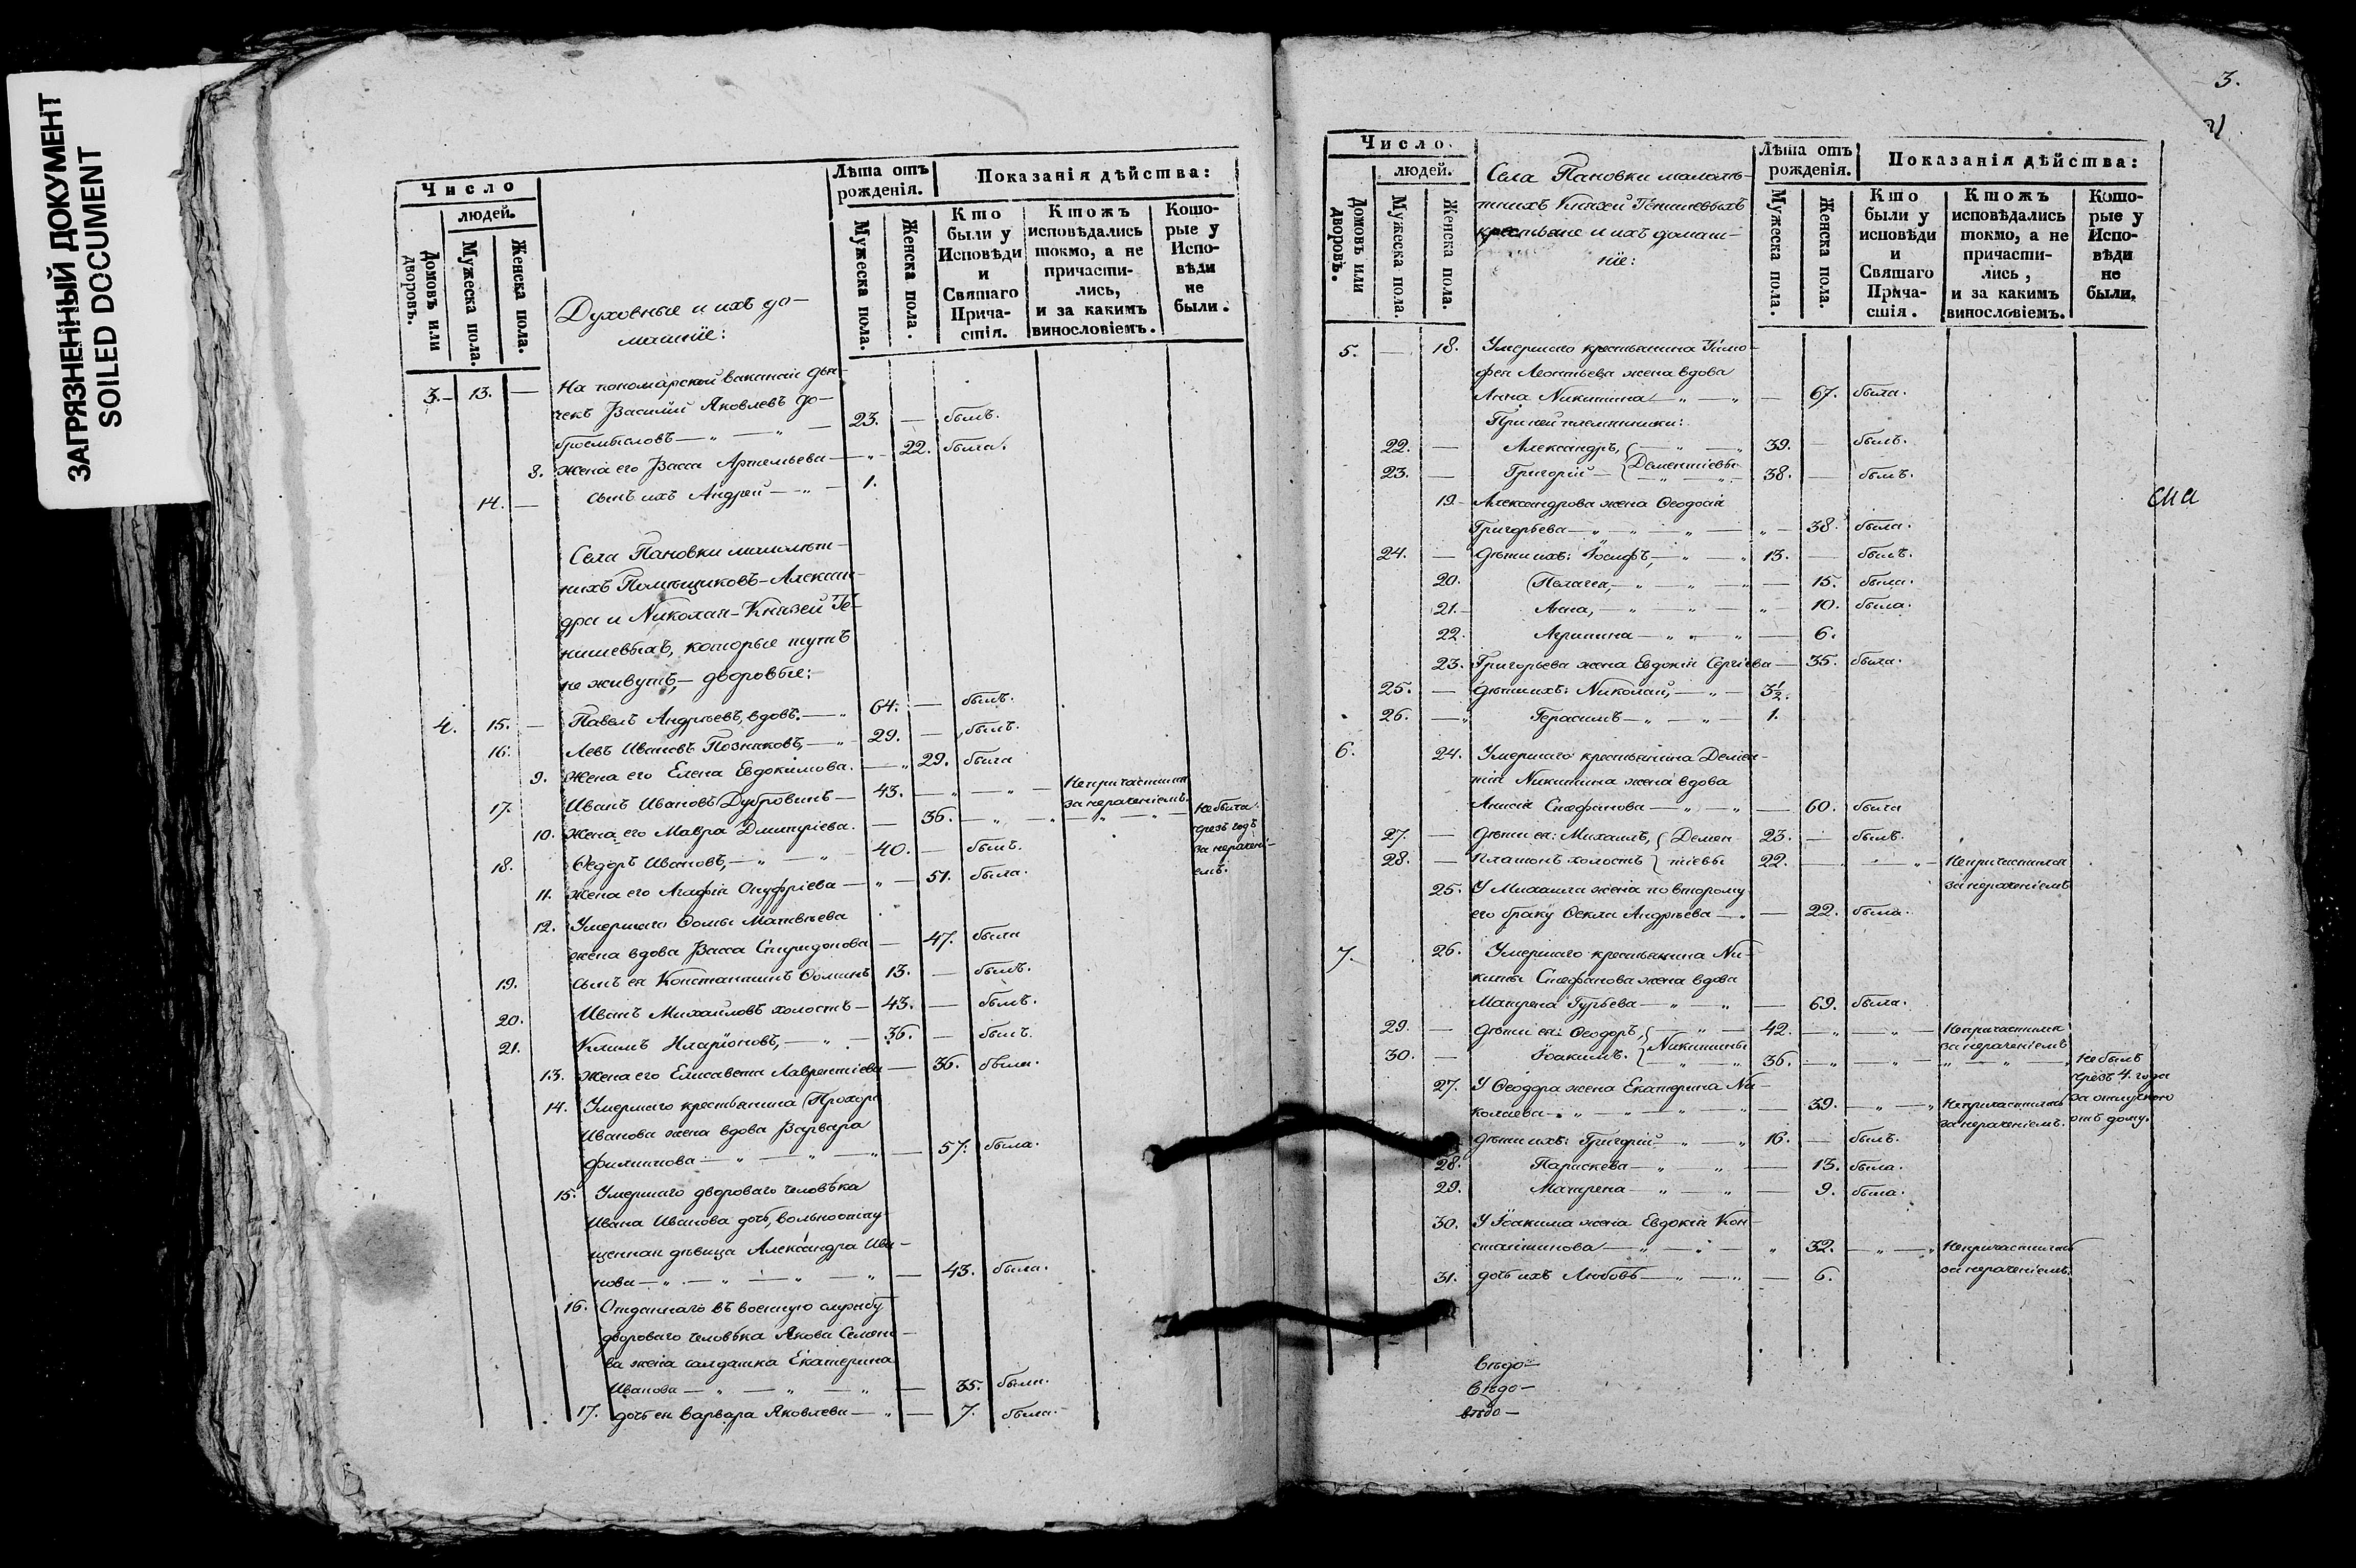 ЗАГРЯЗНЕННЫЙ ДОКУМЕНТ
SOILED DOCUMENT
Число
людей.
Домовъ или дворовъ.
Мужеска пола.
Женска пола.
Духовные и ихъ до-
машніе:
Лѣта отъ рожденія.
Мужеска пола.
Женска пола.
Показанія дѣйства:
Кто были у Исповѣди и Святаго Причастія.
Ктожъ исповѣдались токмо, а не причастились, и за какимъ винословіемъ.
Которые у Исповѣди не были.
3. 13. — На пономарской вакансіи дья-
чекъ Василій Яковлевъ До-
бросмысловъ — 23. — былъ.
8. Жена его Васса Артемьева — 22. была.
14. — сынъ ихъ Андрей — 1.
Села Пановки малолѣт-
нихъ Помѣщиковъ Алексан-
дра и Николая Князей Те-
нишевыхъ, которые тутъ
не живутъ, — дворовые:
4. 15. — Павелъ Андреевъ, вдовъ. — 64. — былъ.
16. Левъ Ивановъ Позняковъ, — 29. — былъ.
9. Жена его Елена Евдокимова. — 29. была
17. Иванъ Ивановъ Дубровинъ — 43. — Непричастился за нераченіемъ.
10. Жена его Мавра Дмитріева. — 36. — Небыла чрезъ годъ за нераченіемъ.
18. Ѳедоръ Ивановъ, — 40. — былъ.
11. Жена его Агафія Онуфріева — 51. была.
12. Умершаго Ѳомы Матвѣева
жена вдова Васса Спиридонова — 47. была
19. сынъ ея Константинъ Ѳоминъ 13. — былъ.
20. Иванъ Михайловъ холостъ — 43. — былъ.
21. Климъ Иларіоновъ, — 36. — былъ.
13. Жена его Елисавета Лаврентіева — 36. была.
14. Умершаго крестьянина Прохора
Иванова жена вдова Варвара
Филиппова — 57. была.
15. Умершаго двороваго человѣка
Ивана Иванова дочь, вольноотпу-
щенная дѣвица Александра Ива-
нова — 43. была.
16. Отданнаго въ военную службу
двороваго человѣка Якова Семено-
ва жена салдатка Екатерина
Иванова — 35. была.
17. дочь ея Варвара Яковлева — 7. была.
3.
Число
людей.
Домовъ или дворовъ.
Мужеска пола.
Женска пола.
Села Пановки малолѣ-
тнихъ Князей Тенишевыхъ
крестьяне и ихъ домаш-
ніе:
Лѣта отъ рожденія.
Мужеска пола.
Женска пола.
Показанія дѣйства:
Кто были у исповѣди и Святаго Причастія.
Ктожъ исповѣдались токмо, а не причастились, и за какимъ винословіемъ.
Которые у Исповѣди не были.
5. — 18. Умершаго крестьянина Тимо-
фея Леонтьева жена вдова
Анна Никитина — 67. была.
При ней племянники:
22. — Александръ, — 39. — былъ.
23. — Григорій — Дементіевы 38. — былъ.
19. Александрова жена Ѳеодосія
Григорьева — 38. была.
24. — Дѣти ихъ: Іосифъ, — 13. — былъ.
20. Пелагея, — 15. была.
21. Анна, — 10. была.
22. Агрипина — 6.
23. Григорьева жена Евдокія Сергіева — 35. была.
25. — Дѣти ихъ: Николай, — 3½.
26. — Герасимъ — 1.
6. 24. Умершаго крестьянина Демен-
тія Никитина жена вдова
Анисія Стефанова — 60. была
27. — Дѣти ея: Михаилъ, Демен- 23. — былъ.
28. — Платонъ холостъ тіевы 22. — Непричастился за нераченіемъ
25. У Михаила жена по второму
его браку Ѳекла Андреева — 22. была.
7. 26. Умершаго крестьянина Ни-
киты Стефанова жена вдова
Матрена Гурьева — 69. была.
29. — Дѣти ея: Ѳеодоръ, 42. — Непричастился за нераченіемъ
30. — Іоакимъ. Никитины 36. — Небылъ чрезъ 4. года за отлучкою отъ дому.
27. У Ѳеодора жена Екатерина Ни-
колаева — 39. — Непричастилась за нераченіемъ.
Дѣти ихъ: Григорій — 16. — былъ.
28. Параскева — 13. была.
29. Матрена — 9. была.
30. У Іоакима жена Евдокія Кон-
стантинова — 32. — Непричастилась за нераченіемъ.
31. дочь ихъ Любовь — 6.
вѣдо-
вѣдо-
вѣдо-